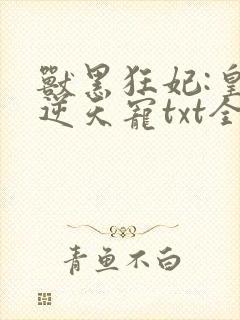 獸黑狂妃:皇
逆天寵txt全
青鱼不白